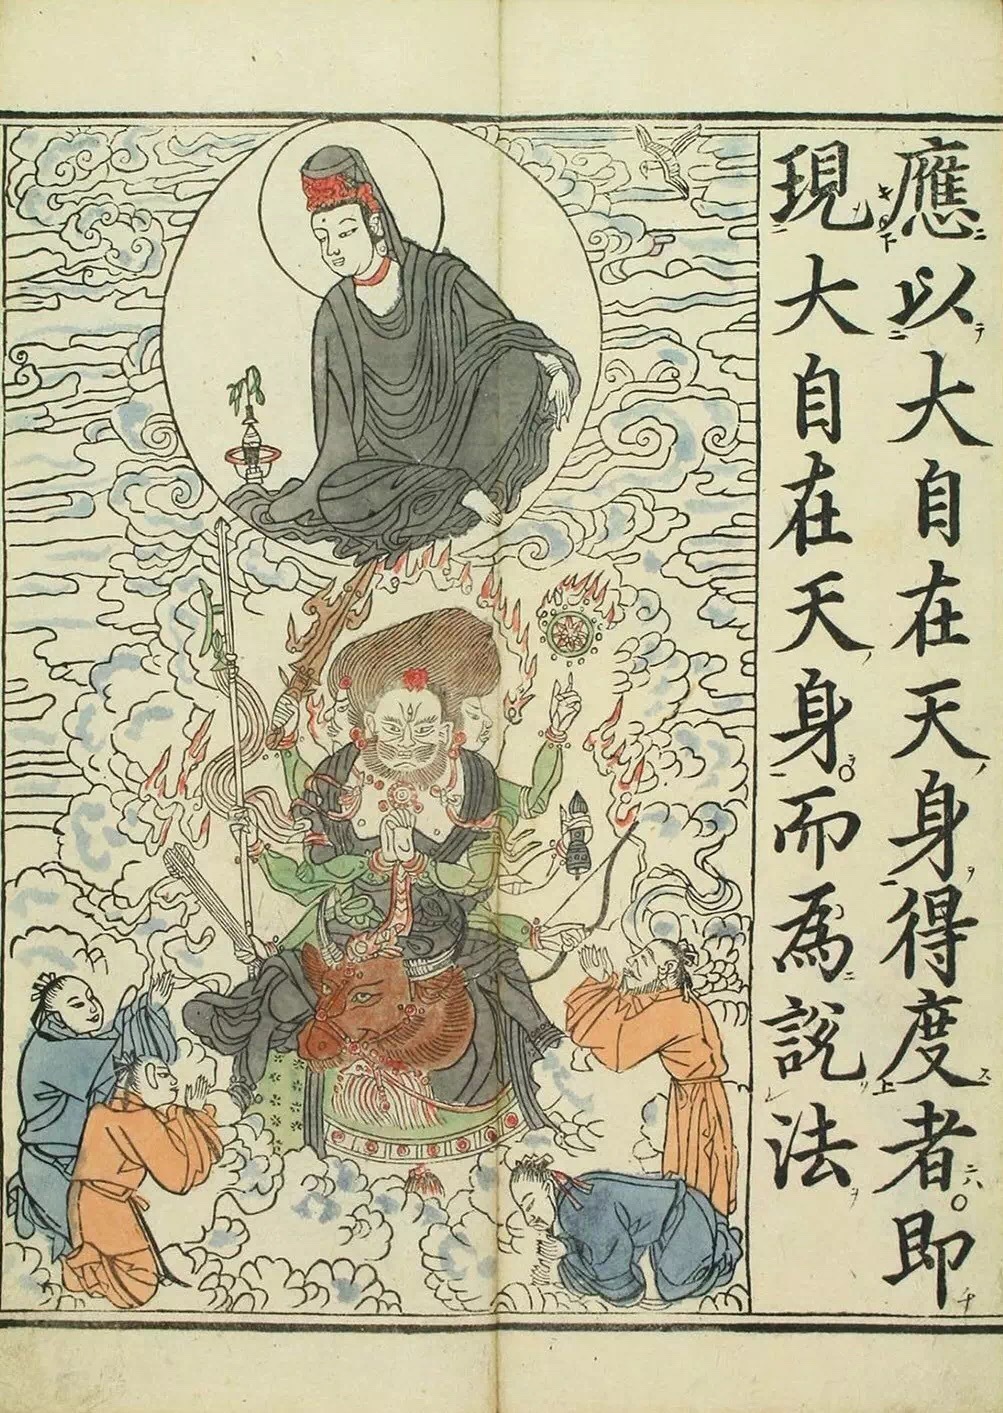 應以大自在天身得度者。即
現大自在天身。而為說法